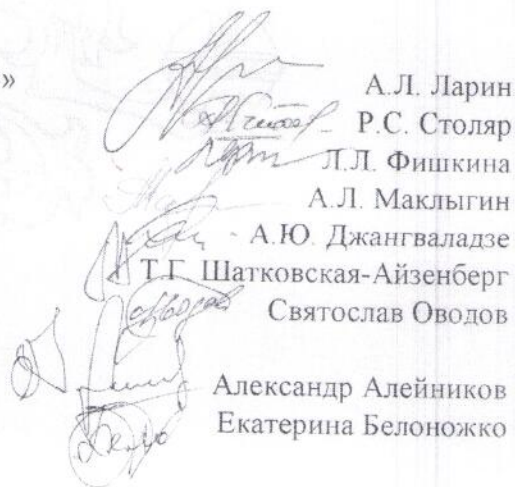 »
А.Л. Ларин
Р.С. Столяр
Л.Л. Фишкина
А.Л. Маклыгин
А.Ю. Джангваладзе
Т.Г. Шатковская-Айзенберг
Святослав Оводов
Александр Алейников
Екатерина Белоножко